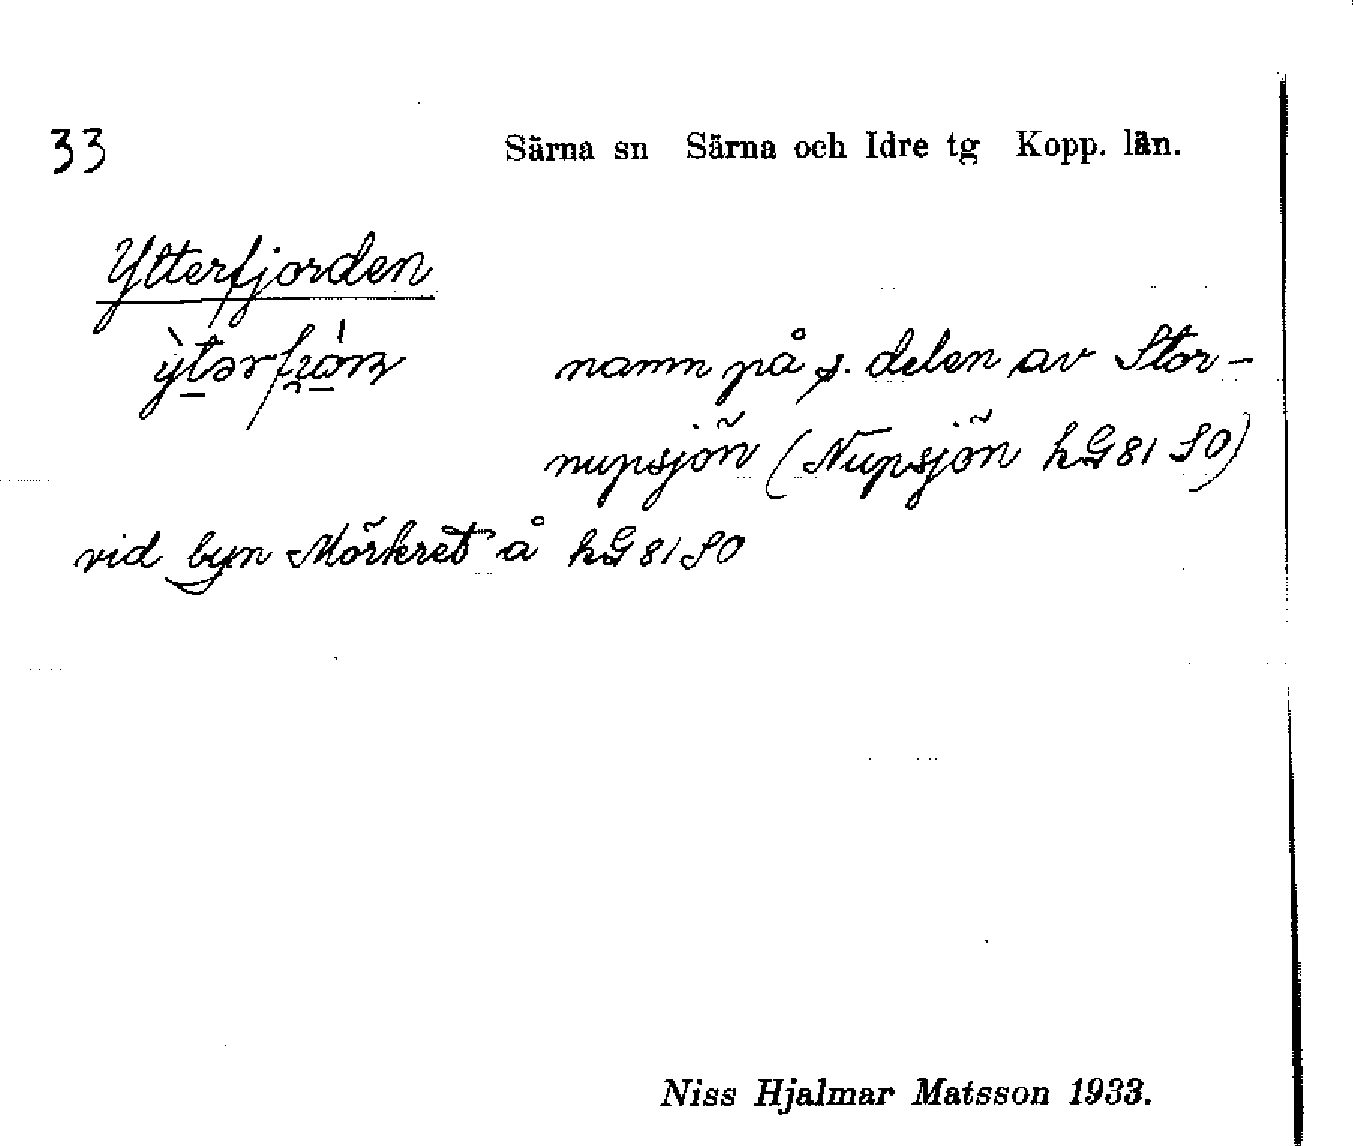 33 Särna sn Särna och Idre tg Kopp. län.
Ytterfjorden
namn på s. delen av Stor-
nupsjön (Nupsjön hG 81 SO)
vid byn Mörkret å hG 81 SO
Niss Hjalmar Matsson 1933.